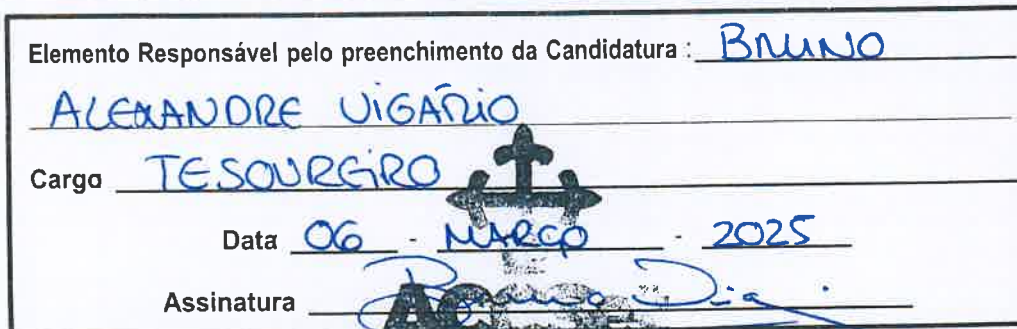 Elemento Responsável pelo preenchimento da Candidatura : BRUNO
ALEXANDRE VIGÁRIO
Cargo TESOUREIRO
Data 06 - MARÇO - 2025
Assinatura Bruno Dias
AC